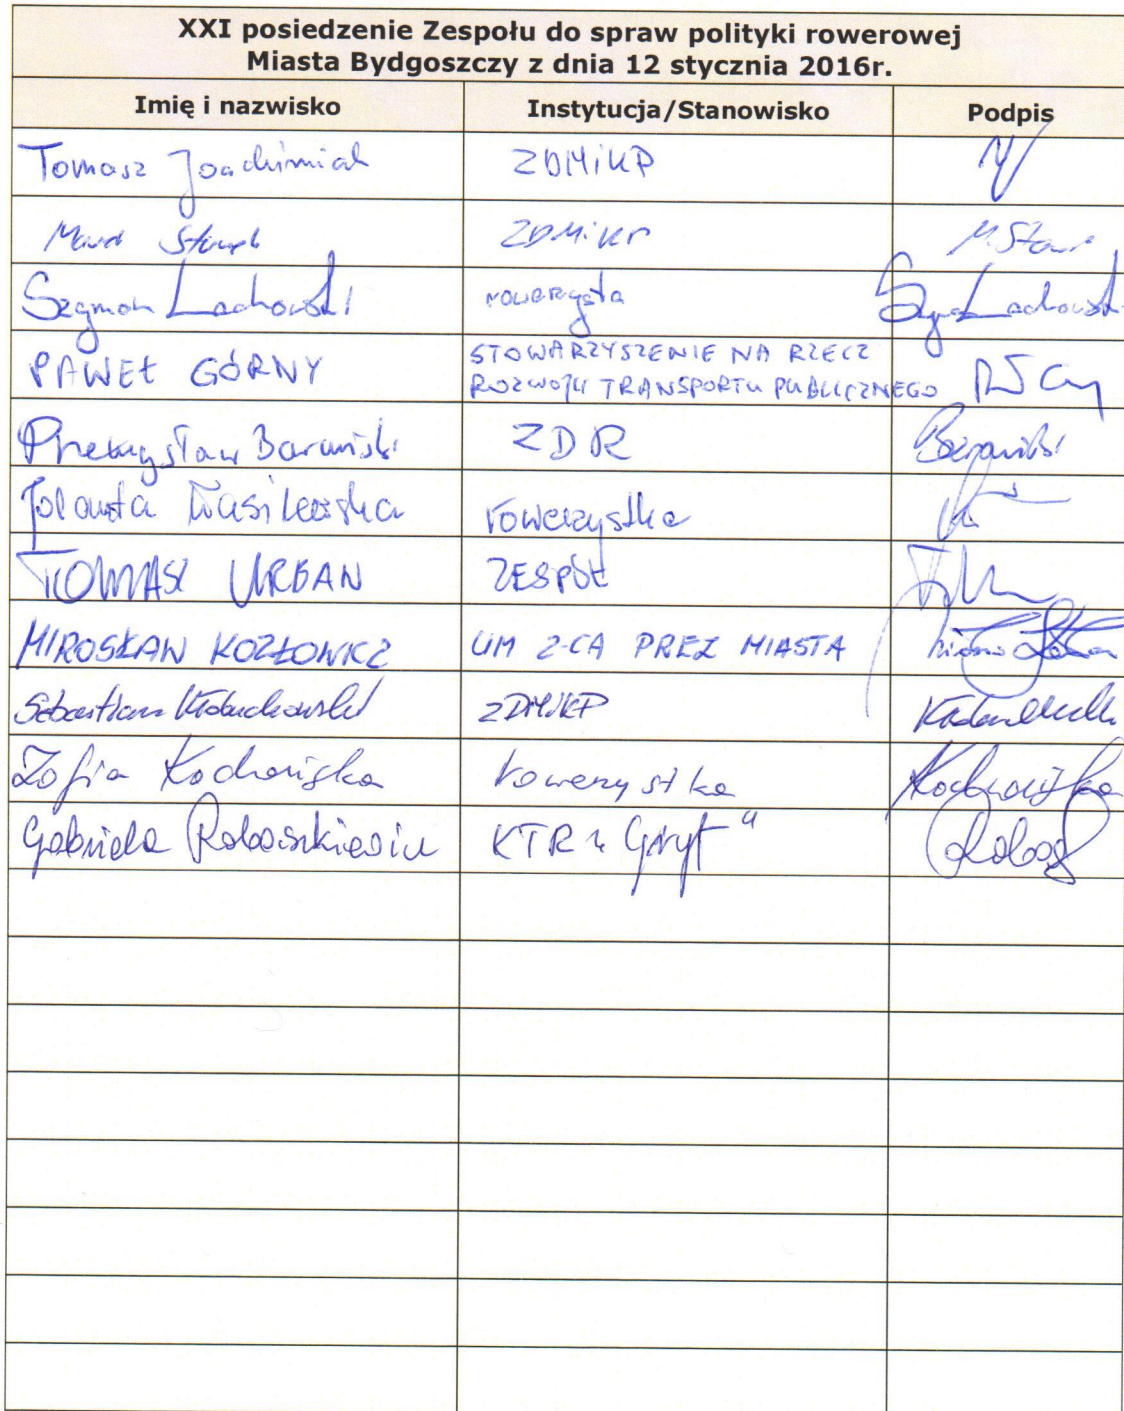 XXI posiedzenie Zespołu do spraw polityki rowerowej
Miasta Bydgoszczy z dnia 12 stycznia 2016r.
Imię i nazwisko Instytucja/Stanowisko Podpis
Tomasz Joachimiak ZDMiKP
ZDMiKP M.Sta
Szymon Lachowski rowerzysta Szym Lachowski
PAWEŁ GÓRNY STOWARZYSZENIE NA RZECZ
ROZWOJU TRANSPORTU PUBLICZNEGO
Przemysław Barański ZDR Barański
Jolanta Wasilewska rowerzystka
TOMASZ URBAN ZESPÓŁ
MIROSŁAW KOZŁOWICZ UM Z-CA PREZ MIASTA
Sebastian ZDMiKP
Zofia Kochańska rowerzystka Kochańska
Gabriela KTR „Gryf"